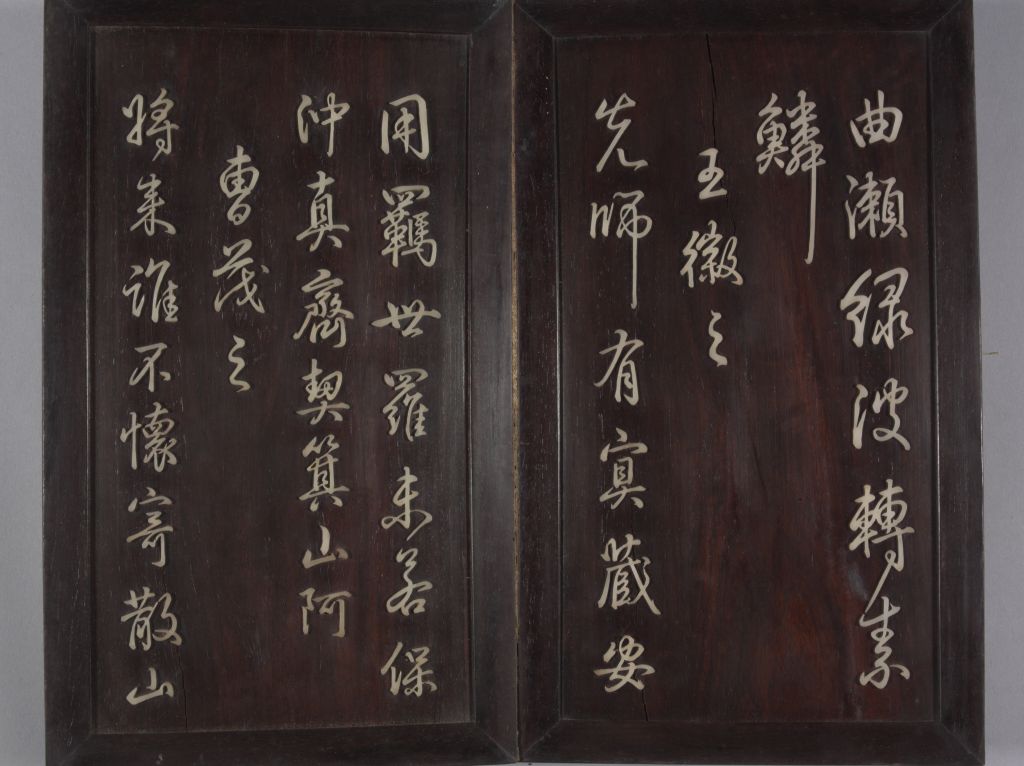 曲瀬緑波轉素
鱗
王徽之
先師有冥藏安
用羈世羅未若保
沖真齊契箕山阿
曹茂之
将来誰不懷寄散山